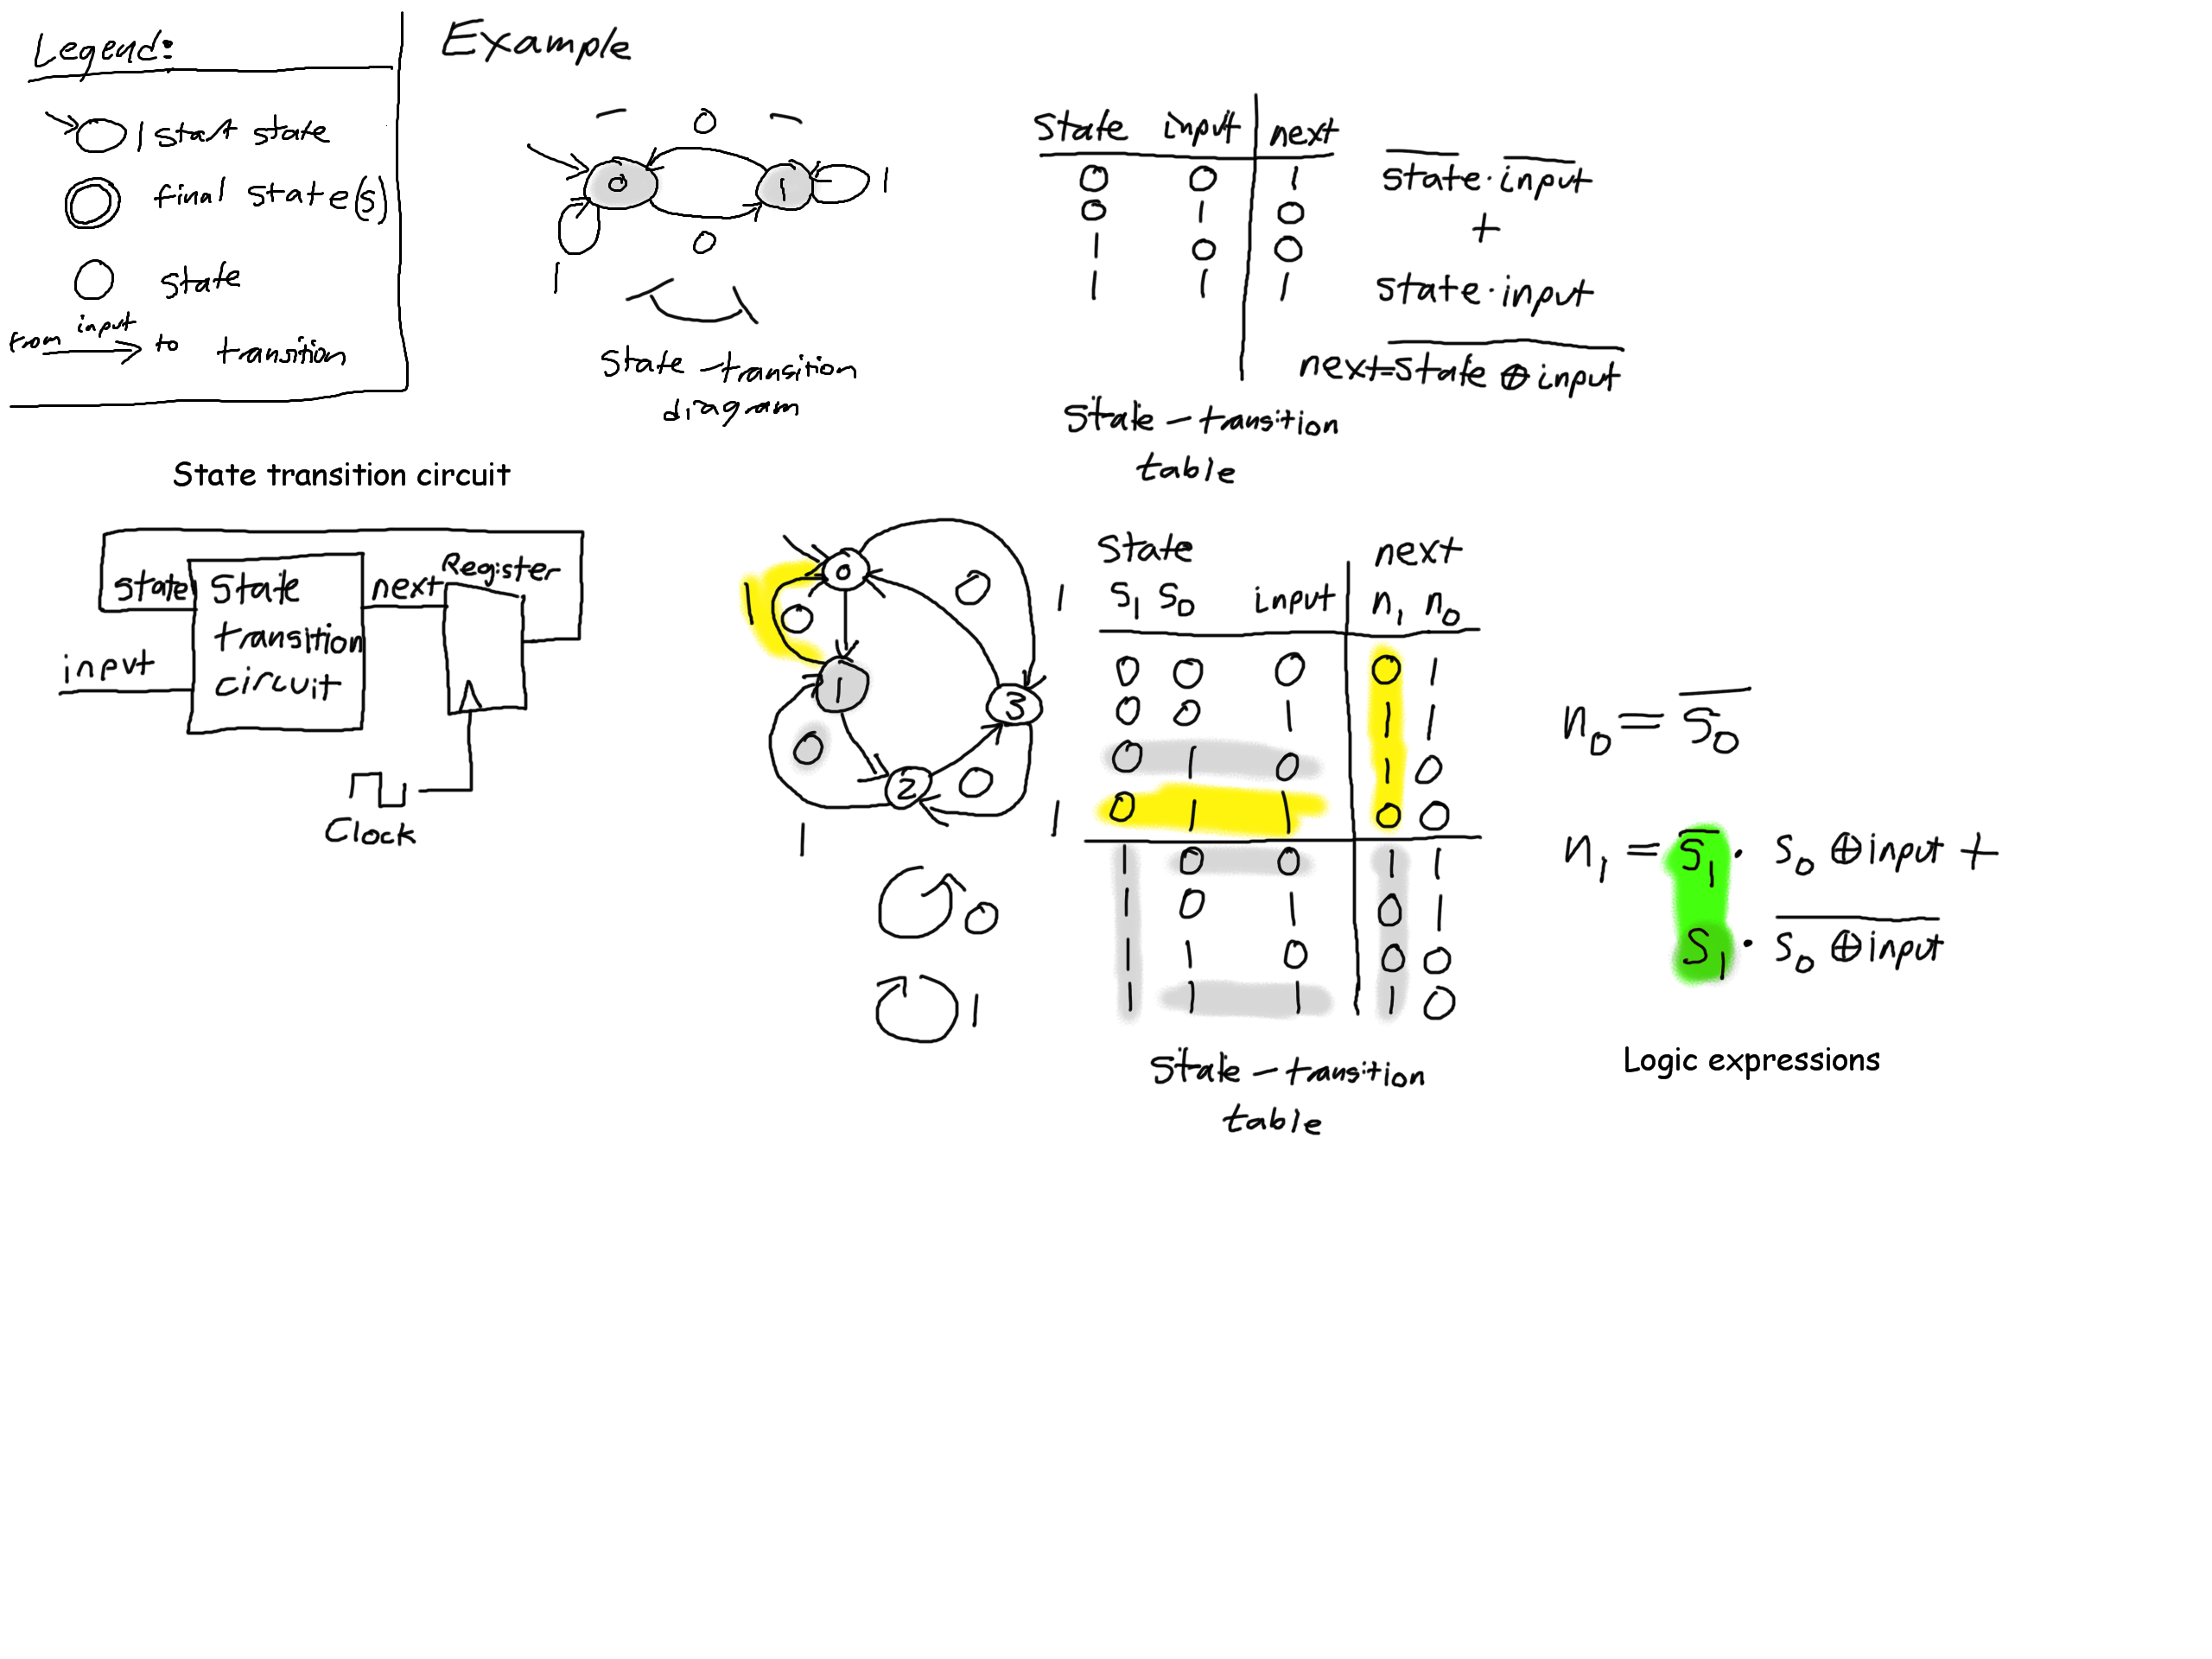 Legend:
1 start state
final state(s)
state
from input to transition
Example
0
0 1 1
1 0
State-transition
diagram
state input next
0 0 1
0 1 0
1 0 0
1 1 1
s̅t̅a̅t̅e̅·i̅n̅p̅u̅t̅
+
state·input
next=s̅t̅a̅t̅e̅ ̅⊕̅ ̅i̅n̅p̅u̅t̅
State-transition
table
State transition circuit
state
input
State
transition
circuit
next
Register
Clock
0
1 0 0 1
1
3
0 2 0
1 1
0
1
State next
S₁ S₀ input n₁ n₀
0 0 0 0 1
0 0 1 1 1
0 1 0 1 0
0 1 1 0 0
1 0 0 1 1
1 0 1 0 1
1 1 0 0 0
1 1 1 1 0
State-transition
table
n₀ = S̅₀̅
n₁ = S̅₁ · S₀ ⊕ input +
S₁ · S̅₀̅ ̅⊕̅ ̅i̅n̅p̅u̅t̅
Logic expressions